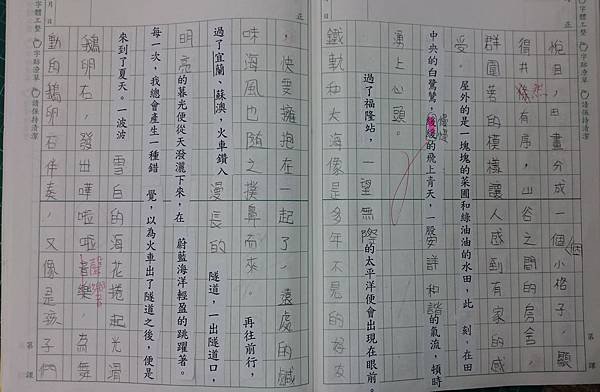 格田,田畫分成一個個小格子,顯
得井然有序,山谷之間的房舍,
群圍著的模樣讓人感到有家的感
受。 屋外的是一塊塊的菜圃和綠油油的水田,此刻,在田
中央的白鷺鷥,緩緩的飛上青天,一股安詳和諧的氣流,頓時
湧上心頭。
過了福隆站,一望無際的太平洋便會出現在眼前。
鐵軌和大海像是多年不見的好友
,快要擁抱在一起了,遠處的鹹
味海風也隨之撲鼻而來。 再往前行,
過了宜蘭、蘇澳,火車鑽入漫長的 隧道,一出隧道口,
明亮的暮光便從天潑灑下來,在 蔚藍海洋輕盈的跳躍著。
每一次,我總會產生一種錯 覺,以為火車出了隧道之後,便是
來到了夏天。一波波 雪白的海花捲起光滑
鵝卵石,發出嘩啦啦聲響,為舞
動的鵝卵石伴奏,又像是孩子們
字體工整
字跡清晰
請保持清潔
月 日
正
第 課
字體工整
字跡清晰
請保持清潔
月 日
正
第 課